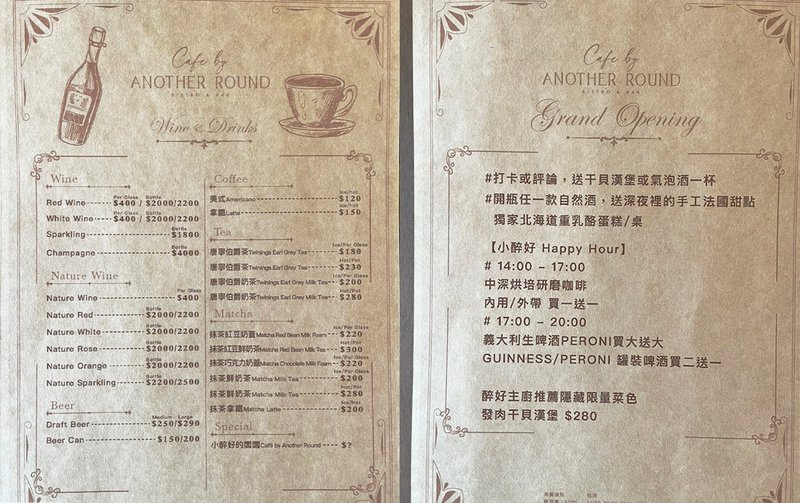 Cafe by
ANOTHER ROUND
BISTRO & BAR
Wine & Drinks
Wine
Per Glass Bottle
Red Wine $400 / $2000/2200
Per Glass Bottle
White Wine $400 / $2000/2200
Bottle
Sparkling $1800
Bottle
Champagne $4000
Nature Wine
Per Glass
Nature Wine $400
Bottle
Nature Red $2000/2200
Bottle
Nature White $2000/2200
Bottle
Nature Rose $2000/2200
Bottle
Nature Orange $2000/2200
Bottle
Nature Sparkling $2200/2500
Beer
Medium Large
Draft Beer $250/$290
Beer Can $150/200
Coffee
Ice/Hot
美式Americano $120
Ice/Hot
拿鐵Latte $150
Tea
Ice/Per Glass
唐寧伯爵茶Twinings Earl Grey Tea $180
Hot/Pot
唐寧伯爵茶Twinings Earl Grey Tea $230
Ice/Per Glass
唐寧伯爵奶茶Twinings Earl Grey Milk Tea $200
Hot/Pot
唐寧伯爵奶茶Twinings Earl Grey Milk Tea $280
Matcha
Ice/Per Glass
抹茶紅豆奶蓋Matcha Red Bean Milk Foam $220
Hot/Pot
抹茶紅豆鮮奶茶Matcha Red Bean Milk Tea $300
Ice/Per Glass
抹茶巧克力奶蓋Matcha Chocolate Milk Foam $220
Ice/Per Glass
抹茶鮮奶茶Matcha Milk Tea $200
Hot/Pot
抹茶鮮奶茶Matcha Milk Tea $280
Ice/Hot
抹茶拿鐵Matcha Latte $200
Special
小醉好的團團Café by Another Round $?
Cafe by
ANOTHER ROUND
BISTRO & BAR
Grand Opening
#打卡或評論，送干貝漢堡或氣泡酒一杯
#開瓶任一款自然酒，送深夜裡的手工法國甜點
獨家北海道重乳酪蛋糕/桌
【小醉好 Happy Hour】
# 14:00 – 17:00
中深烘培研磨咖啡
內用/外帶 買一送一
# 17:00 – 20:00
義大利生啤酒PERONI買大送大
GUINNESS/PERONI 罐裝啤酒買二送一
醉好主廚推薦隱藏限量菜色
發肉干貝漢堡 $280